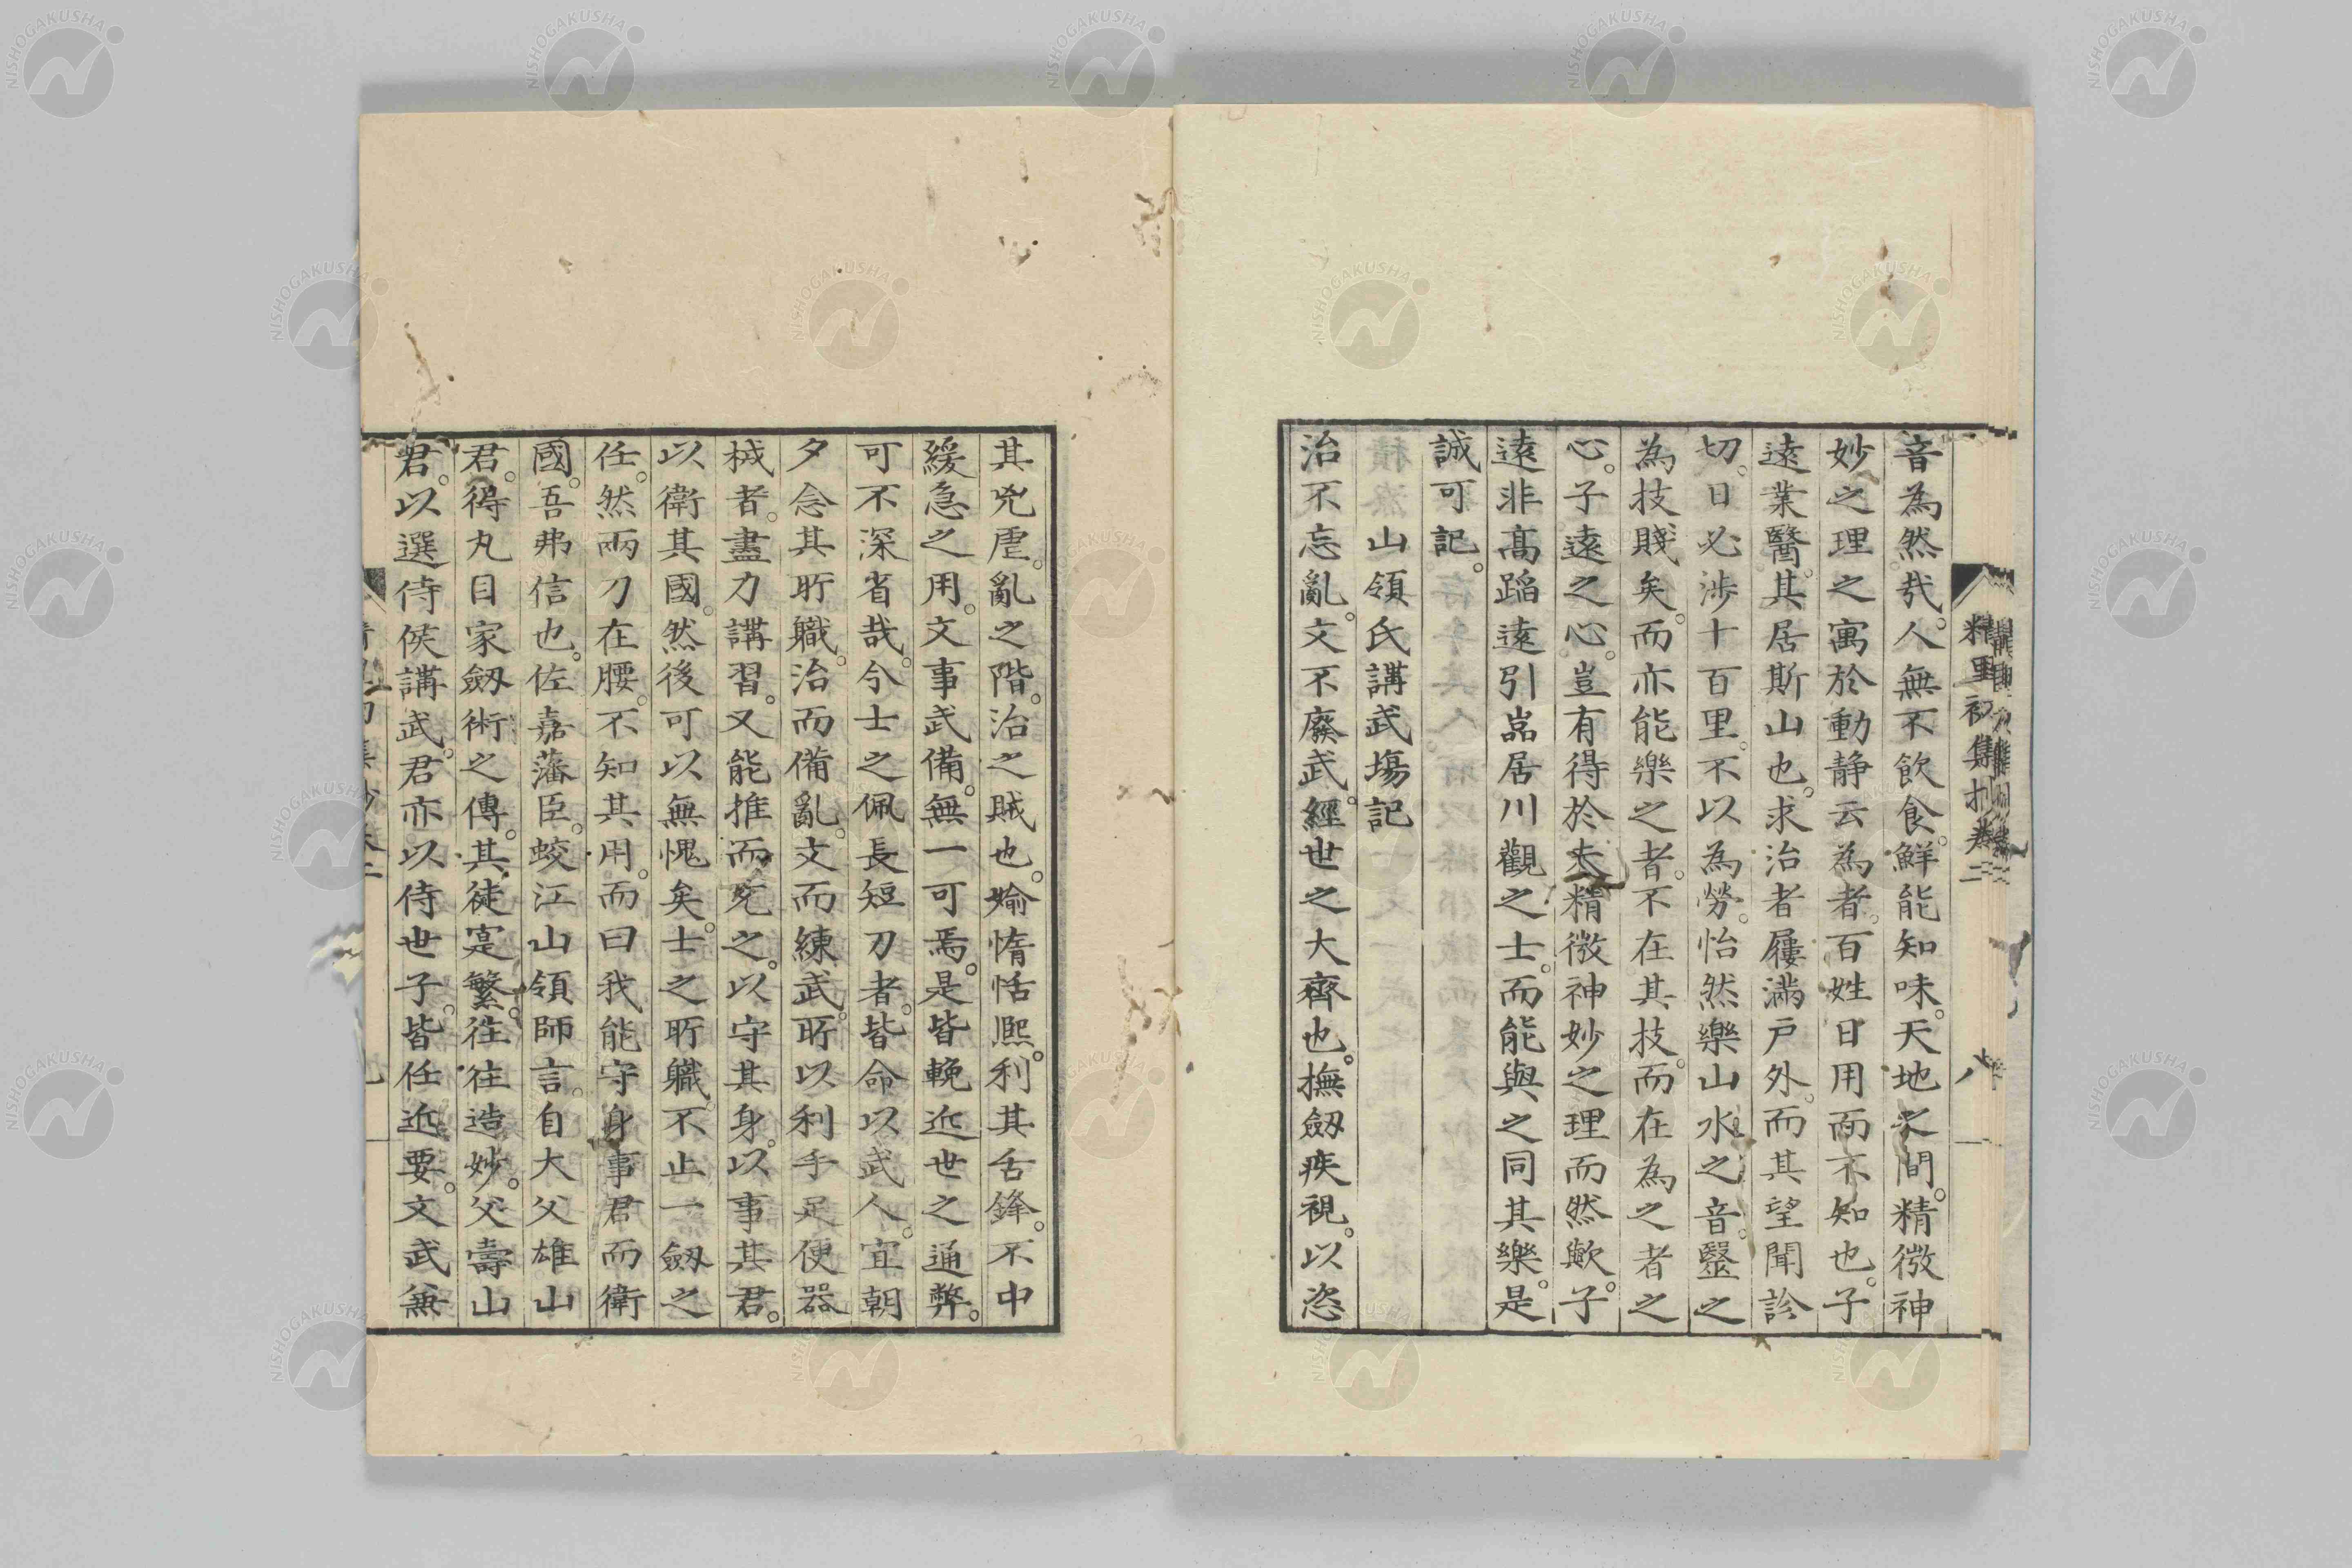 精里初集抄卷二 八
音為然哉。人無不飲食。鮮能知味。天地之間。精微神
妙之理之寓於動静云為者。百姓日用而不知也。子
遠業醫。其居斯山也。求治者屨滿戸外。而其望聞診
切。日必渉十百里。不以為勞。怡然樂山水之音。毉之
為技賤矣。而亦能樂之者。不在其技。而在為之者之
心。子遠之心。豈有得於夫精微神妙之理而然歟。子
遠非髙蹈遠引嵓居川觀之士。而能與之同其樂。是
誠可記。
山領氏講武塲記
治不忘亂。文不廢武。經世之大齊也。撫劔疾視。以恣
其兇虐。亂之階。治之賊也。媮惰恬熈。利其舌鋒。不中
緩急之用。文事武備。無一可焉。是皆輓近世之通弊。
可不深省哉。今士之佩長短刀者。皆命以武人。宜朝
夕念其所職。治而備亂。文而練武。所以利手足便器
械者。盡力講習。又能推而充之。以守其身。以事其君。
以衛其國。然後可以無愧矣。士之所職。不止一劔之
任。然兩刀在腰。不知其用。而曰我能守身事君而衛
國。吾弗信也。佐嘉藩臣。蛟江山領師言。自大父雄山
君。得丸目家劔術之傳。其徒寔繁。往往造妙。父壽山
君。以選侍侯講武。君亦以侍世子。皆任近要。文武兼